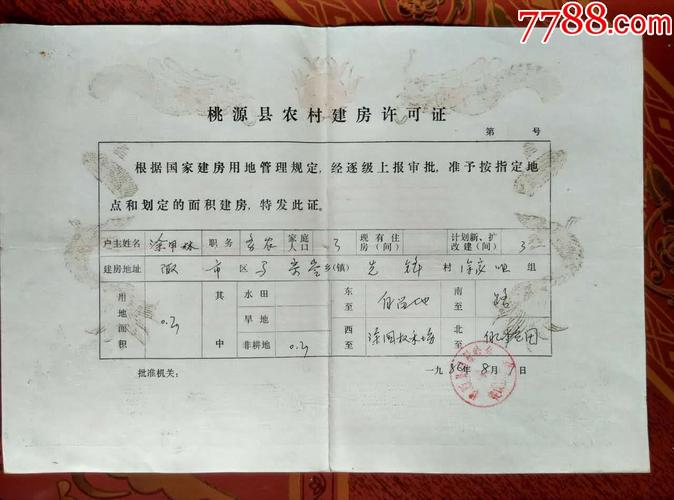 7788.com
桃源县农村建房许可证
第 号
根据国家建房用地管理规定，经逐级上报审批，准予按指定地
点和划定的面积建房，特发此证。
户主姓名 职务 务农 家庭人口 3 现有住房（间） 计划新、扩改建（间） 3
建房地址 市 区 乡(镇) 先锋 村 组
用地面积 0.3 其中 水田 东至 自留地 南至 路
旱地
非耕地 0.3 西至 北至
批准机关： 一九86年8月 日